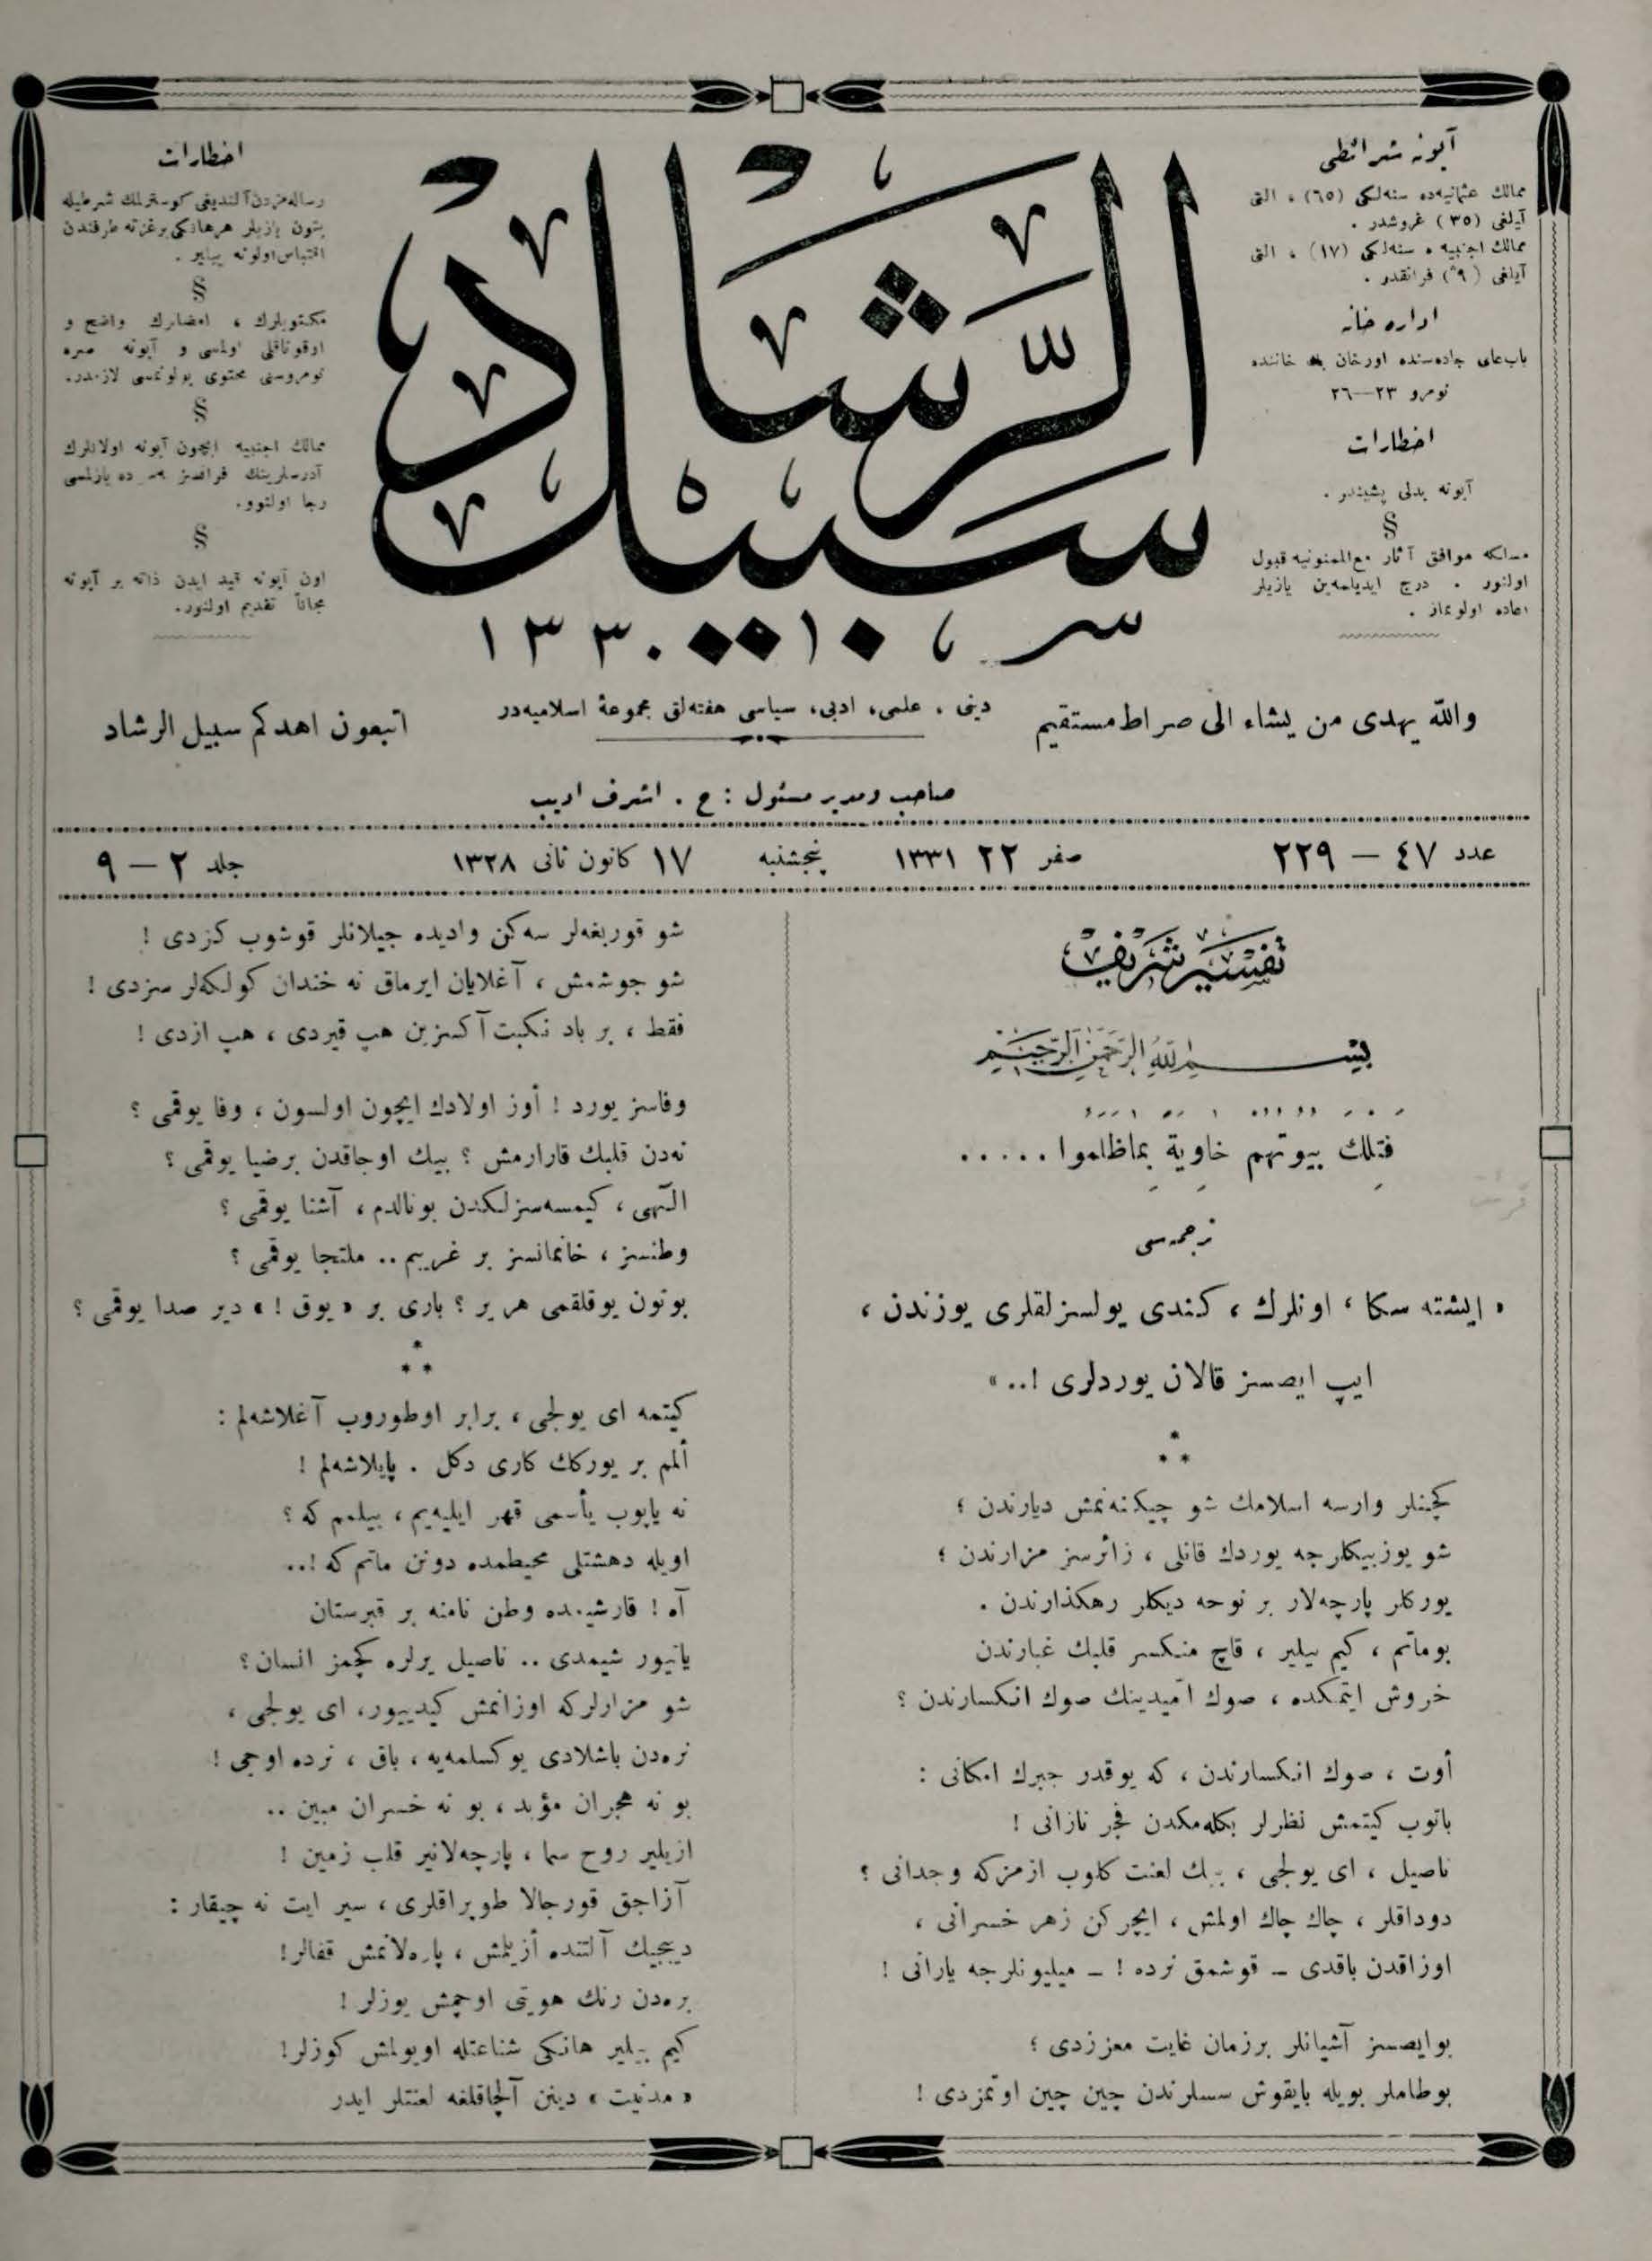 آبونه شرائطی
ممالك عثمانیه‌ده سنه‌لكی (٦٥) ، التی
آیلغی (٣٥) غروشدر .
ممالك اجنبیه ، سنه‌لكی (١٧) ، التی
آیلغی (٩) فرانقدر .
اداره خانه
باب‌عالی جاده‌سنده اورخان بك خاننده
نومرو ٢٣—٢٦
اخطارات
آبونه بدلی پشیندر .
§
مسلكه موافق آثار مع‌الممنونیه قبول
اولنور . درج ایدیلمه‌ین یازیلر
اعاده اولونماز .
سبیل الرشاد
١٣٣٠
اخطارات
رساله‌مزدن آلندیغی كوسترلمك شرطیله
بتون یازیلر هرهانكی برغزته طرفندن
اقتباس اولونه بیلیر .
§
مكتوبلرك ، امضارك واضح و
اوقوناقلی اولمسی و آبونه صره
نومروسنی محتوی بولونمسی لازمدر.
§
ممالك اجنبیه ایچون آبونه اولانلرك
آدرسلرینك فرانسزجه ده یازلمسی
رجا اولنور.
§
اون آبونه قید ایدن ذاته بر آبونه
مجاناً تقدیم اولنور.
والله یهدی من یشاء الی صراط مستقیم
دینی ، علمی، ادبی، سیاسی هفته‌لق مجموعهٔ اسلامیه‌در
اتبعون اهدكم سبیل الرشاد
صاحب ومدیر مسئول : ح . اشرف ادیب
عدد ٤٧ — ٢٢٩
صفر ٢٢ ١٣٣١
پنجشنبه
١٧ كانون ثانی ١٣٢٨
جلد ٢ — ٩
تفسیر شریف
بسم الله الرحمن الرحیم
فتلك بیوتهم خاویة بماظلموا .....
ترجمه‌سی
« ایشته سكا ، اونلرك ، كندی یولسزلقلری یوزندن ،
ایپ ایصسز قالان یوردلری !.. »
كچینلر وارسه اسلامك شو چیكنه‌نمش دیارندن ؛
شو یوزبیكلرجه یوردك قانلی ، زائرسز مزارندن ؛
یوركلر پارچه‌لار بر نوحه دیكلر رهكذارندن .
بوماتم ، كیم بیلیر ، قاچ منكسر قلبك غبارندن
خروش ایتمكده ، صوك امیدینك صوك انكسارندن ؟
أوت ، صوك انكسارندن ، كه یوقدر جبرك امكانی :
باتوب كیتمش نظرلر بكله‌مكدن فجر نازانی !
ناصیل ، ای یولجی ، بیك لعنت كلوب ازمزكه وجدانی ؟
دوداقلر ، چاك چاك اولمش ، ایچركن زهر خسرانی ،
اوزاقدن باقدی ـ قوشمق نرده ! ـ میلیونلرجه یارانی !
بوایصسز آشیانلر برزمان غایت معززدی ؛
بوطاملر بویله بایقوش سسلرندن چین چین اوتمزدی !
شو قوربغه‌لر سه‌كن وادیده جیلانلر قوشوب كزدی !
شو جوشمش ، آغلایان ایرماق نه خندان كولكه‌لر سزدی !
فقط ، بر باد نكبت آكسزین هپ قیردی ، هپ ازدی !
وفاسز یورد ! أوز اولادك ایچون اولسون ، وفا یوقمی ؟
نه‌دن قلبك قارارمش ؟ بیك اوجاقدن برضیا یوقمی ؟
الهی ، كیمسه‌سزلكدن بونالدم ، آشنا یوقمی ؟
وطنسز ، خانمانسز بر غریبم .. ملتجا یوقمی ؟
بوتون یوقلقمی هر یر ؟ باری بر « یوق ! » دیر صدا یوقمی ؟
كیتمه ای یولجی ، برابر اوطوروب آغلاشه‌لم :
ألمم بر یوركك كاری دكل . پایلاشه‌لم !
نه یاپوب یأسمی قهر ایلیه‌یم ، بیلمم كه ؟
اویله دهشتلی محیطمده دونن ماتم كه !..
آه ! قارشیمده وطن نامنه بر قبرستان
یاتیور شیمدی .. ناصیل یرلره كچمز انسان ؟
شو مزارلركه اوزانمش كیدییور، ای یولجی ،
نره‌دن باشلادی یوكسلمه‌یه ، باق ، نرده اوجی !
بو نه هجران مؤبد ، بو نه خسران مبین ..
ازیلیر روح سما ، پارچه‌لانیر قلب زمین !
آزاجق قورجالا طوپراقلری ، سیر ایت نه چیقار :
دیپجیك آلتنده أزیلمش ، پاره‌لانمش قفالر!
بره‌دن رنك هویتی اوچمش یوزلر !
كیم بیلیر هانكی شناعتله اویولمش كوزلر!
« مدنیت » دینن آلچاقلغه لعنتلر ایدر